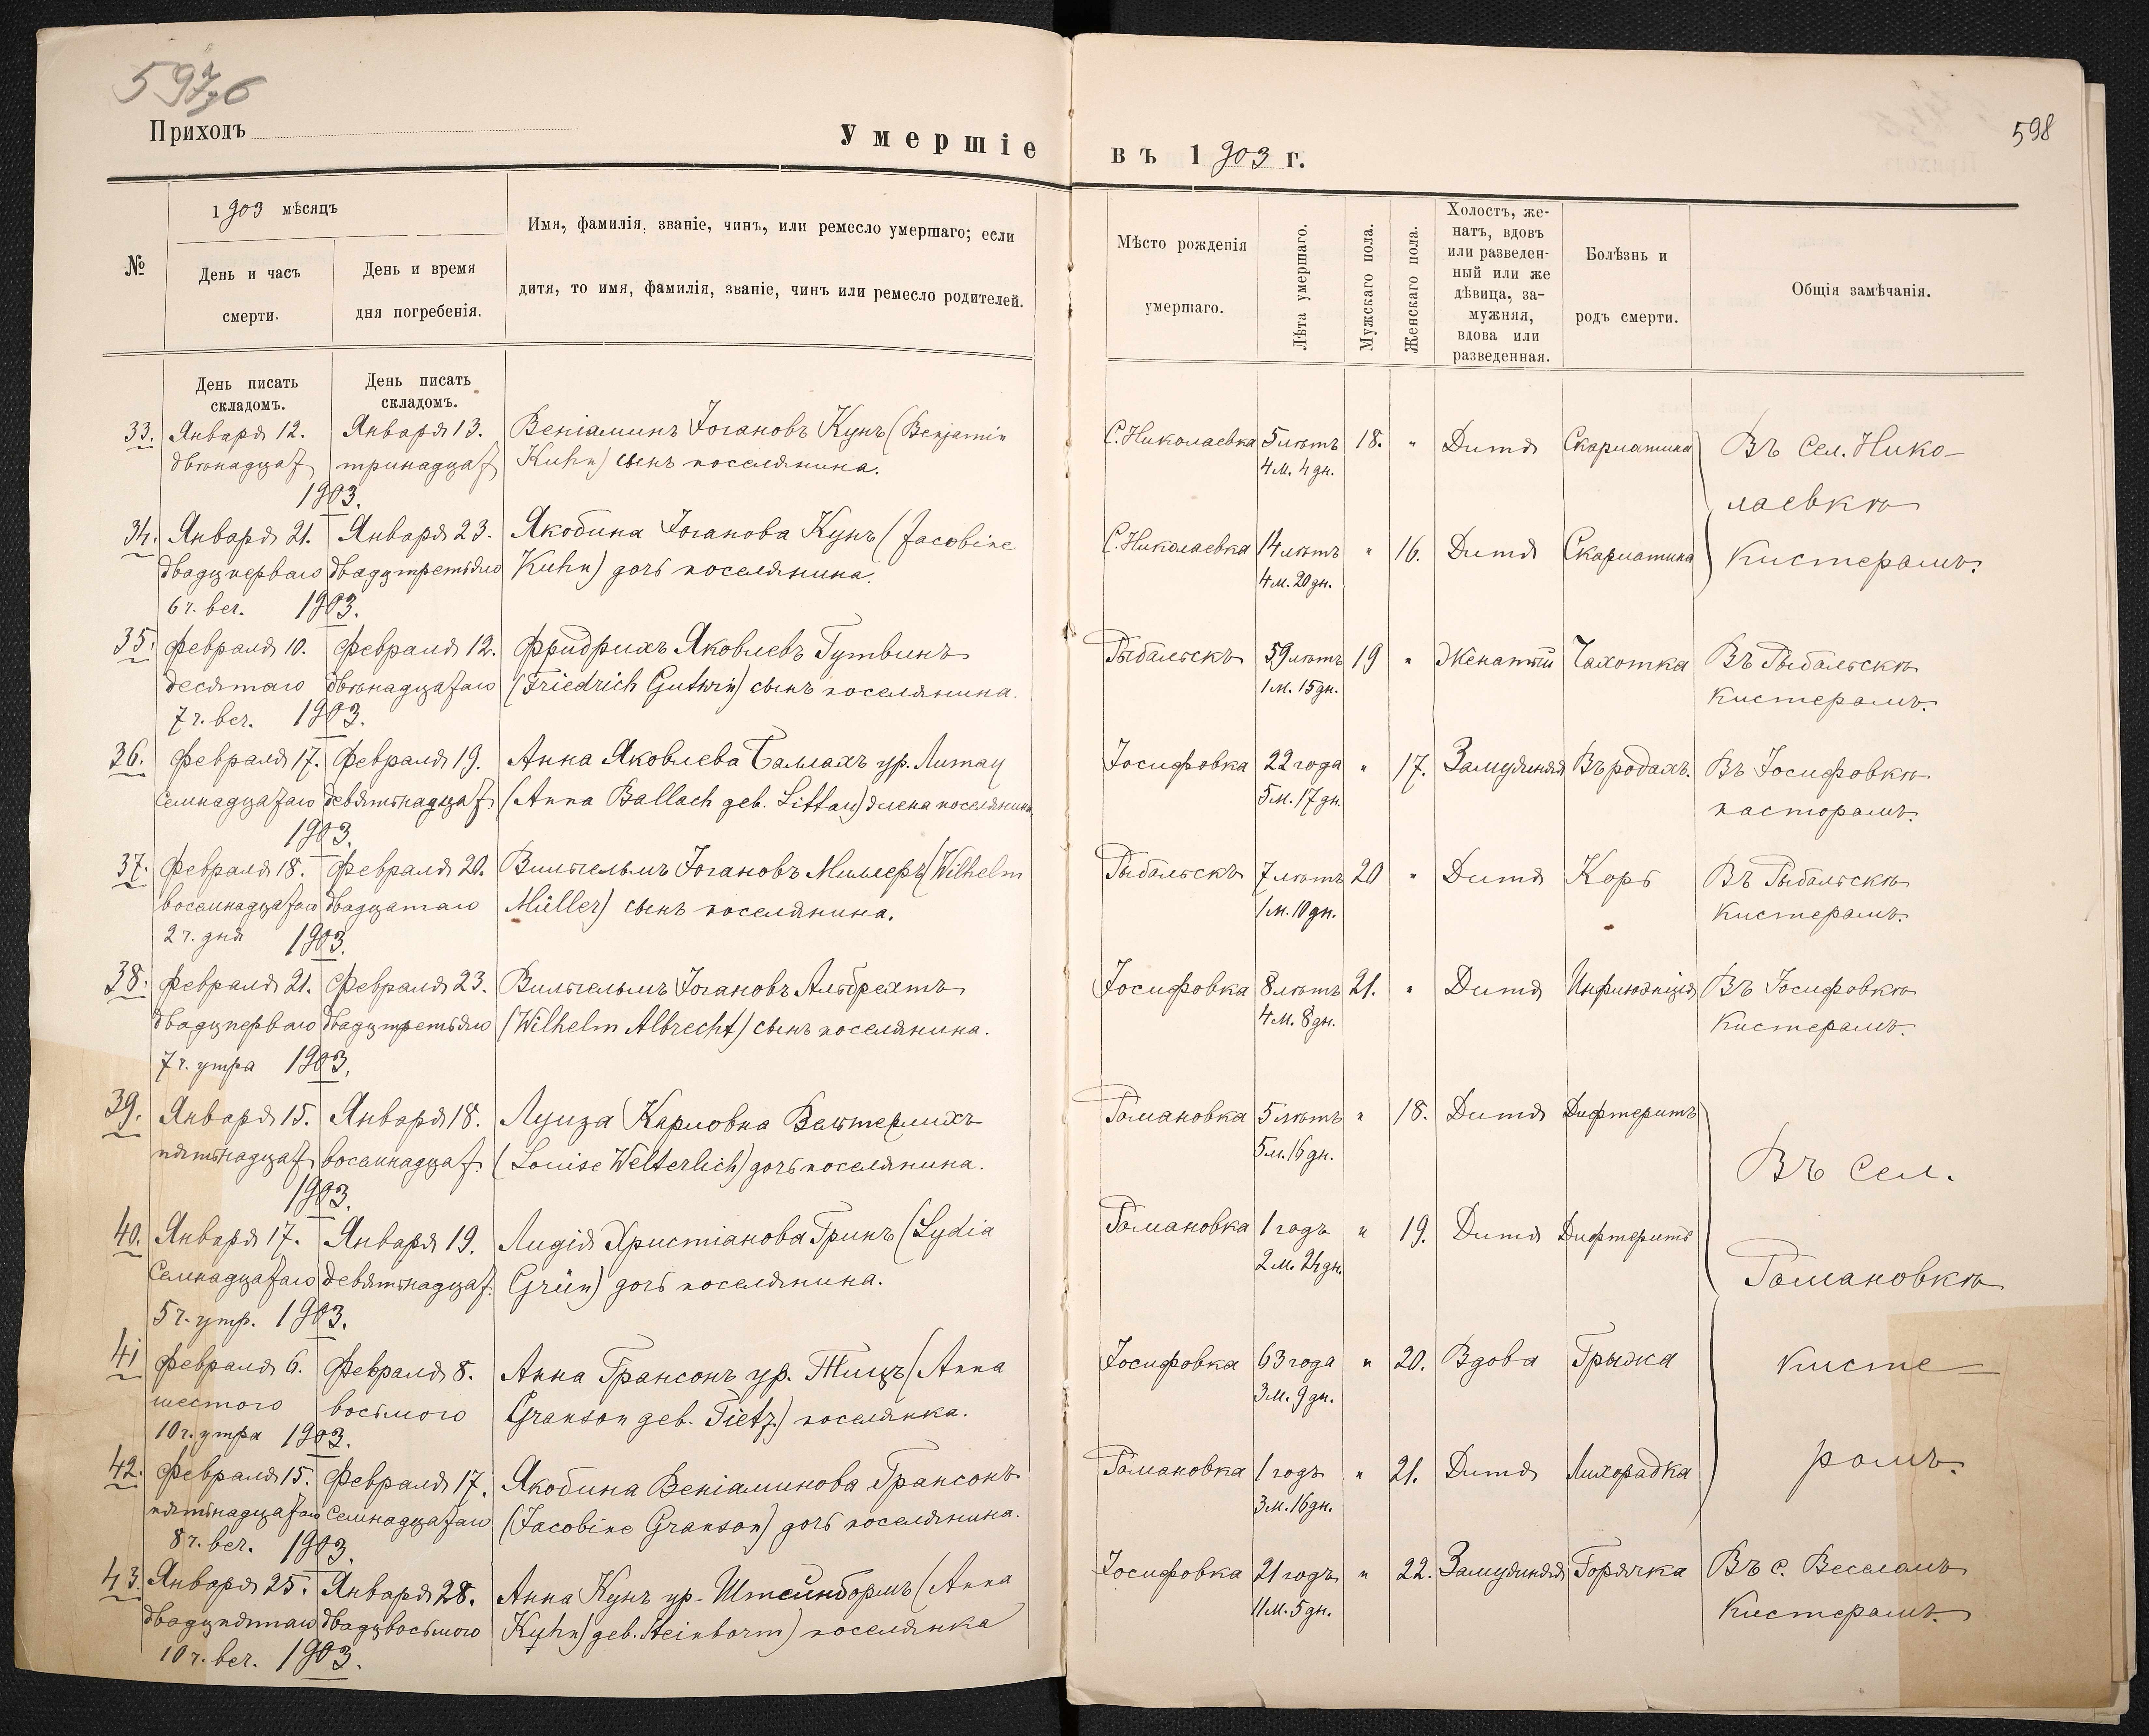 597 б
598
Приходъ
Умершіе въ 1903 г.
№
1903 мѣсяцъ
День и часъ
смерти.
День и время
дня погребенія.
Имя, фамилія, званіе, чинъ, или ремесло умершаго; если
дитя, то имя, фамилія, званіе, чинъ или ремесло родителей.
Мѣсто рожденія
умершаго.
Лѣта умершаго.
Мужскаго пола.
Женскаго пола.
Холостъ, же-
натъ, вдовъ
или разведен-
ный или же
дѣвица, за-
мужняя,
вдова или
разведенная.
Болѣзнь и
родъ смерти.
Общія замѣчанія.
День писать
складомъ.
День писать
складомъ.
33. Января 12. Января 13. Веніаминъ Іогановъ Кунъ (Benjamin С. Николаевка 5 лѣтъ 18. " Дитя Скарлатина Въ Сел. Нико-
двѣнадцат тринадцат Kuhn) сынъ поселянина. 4 м. 4 дн.
1903. лаевкѣ
34. Января 21. Января 23. Якобина Іоганова Кунъ (Jacobine С. Николаевка 14 лѣтъ " 16. Дитя Скарлатина Кистеромъ.
двадцперваго двадцтретьяго Kuhn) дочь поселянина. 4 м. 20 дн.
6 ч. веч. 1903.
35. Февраля 10. Февраля 12. Фридрихъ Яковлевъ Гутвинъ Рыбальскъ 59 лѣтъ 19 " Женатый Чахотка Въ Рыбальскѣ
десятаго двѣнадцатаго (Friedrich Gutwin) сынъ поселянина. 1 м. 15 дн. кистеромъ.
7 ч. веч. 1903.
36. Февраля 17. Февраля 19. Анна Яковлева Баллахъ ур. Литау Іосифовка 22 года " 17. Замужняя Въ родахъ. Въ Іосифовкѣ
семнадцатаго девятнадцат (Anna Ballach geb. Littau) жена поселянина. 5 м. 17 дн. пасторомъ.
1903.
37. Февраля 18. Февраля 20. Вильгельмъ Іогановъ Миллеръ (Wilhelm Рыбальскъ 7 лѣтъ 20 " Дитя Корь Въ Рыбальскѣ
восемнадцатаго двадцатаго Müller) сынъ поселянина. 1 м. 10 дн. Кистеромъ.
2 ч. дня 1903.
38. Февраля 21. Февраля 23. Вильгельмъ Іогановъ Альбрехтъ Іосифовка 8 лѣтъ 21. " Дитя Инфлюэнція Въ Іосифовкѣ
двадцперваго двадцтретьяго (Wilhelm Albrecht) сынъ поселянина. 4 м. 8 дн. Кистеромъ.
7 ч. утра 1903.
39. Января 15. Января 18. Луиза Карловна Вельтерлихъ Романовка 5 лѣтъ " 18. Дитя Дифтеритъ
пятьнадцат восемнадцат. (Louise Welterlich) дочь поселянина. 5 м. 16 дн. Въ Сел.
1903.
40. Января 17. Января 19. Лидія Христіанова Гринъ (Lydia Романовка 1 годъ " 19. Дитя Дифтеритъ
семнадцатаго девятнадцат. Grün) дочь поселянина. 2 м. 24 дн. Романовкѣ
5 ч. утр. 1903.
41 Февраля 6. Февраля 8. Анна Грансонъ ур. Тицъ (Anna Іосифовка 63 года " 20. Вдова Грыжа Кисте-
шестого восьмого Granson geb. Tietz) поселянка. 3 м. 9 дн.
10 ч. утра 1903.
42. Февраля 15. Февраля 17. Якобина Веніаминова Грансонъ Романовка 1 годъ " 21. Дитя Лихорадка ромъ.
пятьнадцатаго семнадцатаго (Jacobine Granson) дочь поселянина. 3 м. 16 дн.
8 ч. веч. 1903.
43. Января 25. Января 28. Анна Кунъ ур. Штейнбормъ (Anna Іосифовка 21 годъ " 22. Замужняя Горячка Въ с. Веселомъ
двадцпятаго двадцвосьмого Kuhn geb. Steinborm) поселянка 11 м. 5 дн. Кистеромъ.
10 ч. веч. 1903.